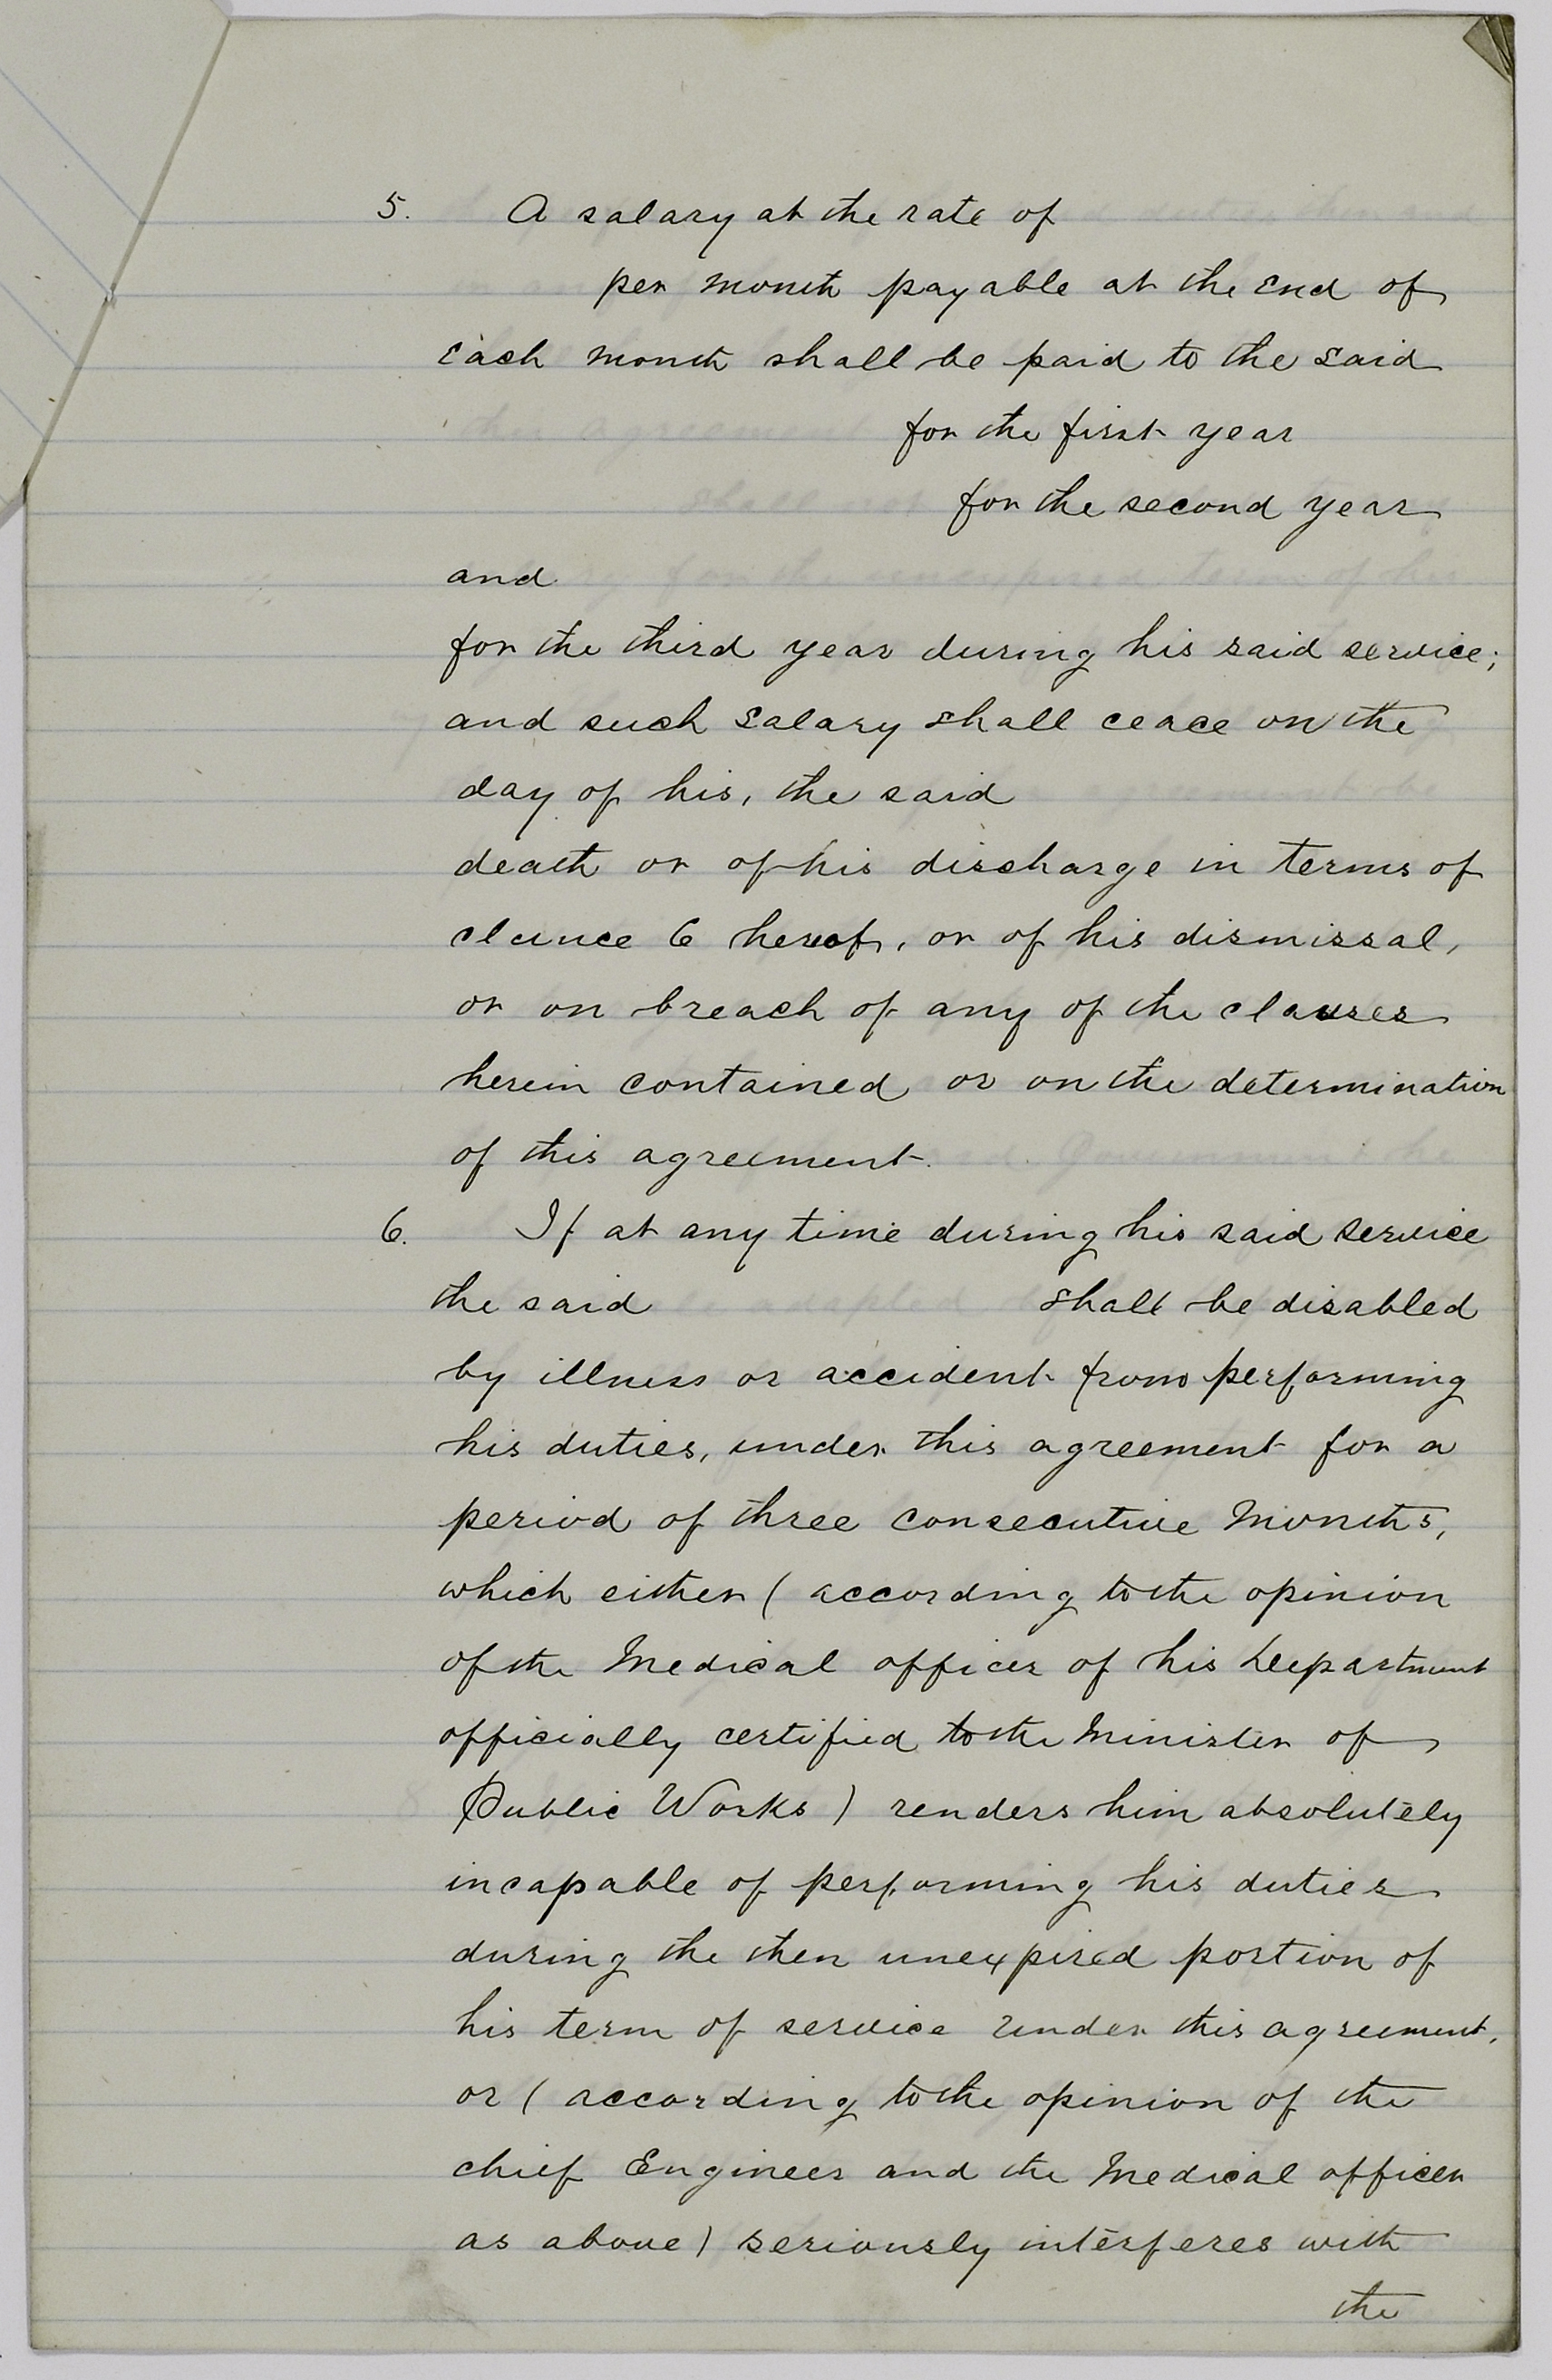 5. A salary at the rate of
per month payable at the end of
each month shall be paid to the said
for the first year
for the second year
and
for the third year during his said service;
and such salary shall ceace on the
day of his, the said
death or of his discharge in terms of
claunce 6 hereof, or of his dismissal,
or on breach of any of the clauses
herein contained or on the determination
of this agreement.
6. If at any time during his said service
the said shall be disabled
by illness or accident from performing
his duties, under this agreement for a
period of three consecutive months,
which either (according to the opinion
of the Medical officer of his Department
officially certified to the Minister of
Public Works) renders him absolutely
incapable of performing his duties
during the then unexpired portion of
his term of service under this agreement,
or (according to the opinion of the
chief Engineer and the Medical officer
as above) seriously interferes with
the